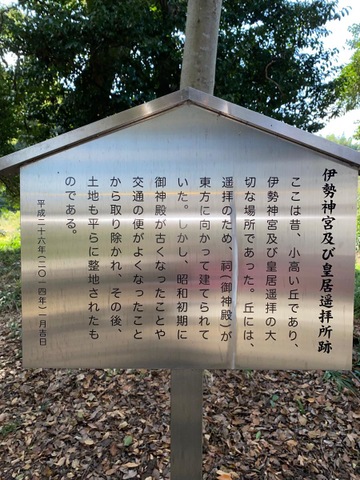 伊勢神宮及び皇居遥拝所跡
ここは昔、小高い丘であり、
伊勢神宮及び皇居遥拝の大
切な場所であった。丘には、
遥拝のため、祠(御神殿)が
東方に向かって建てられて
いた。しかし、昭和初期に
御神殿が古くなったことや
交通の便がよくなったこと
から取り除かれ、その後、
土地も平らに整地されたも
のである。
平成二十六年(二〇一四年)一月吉日